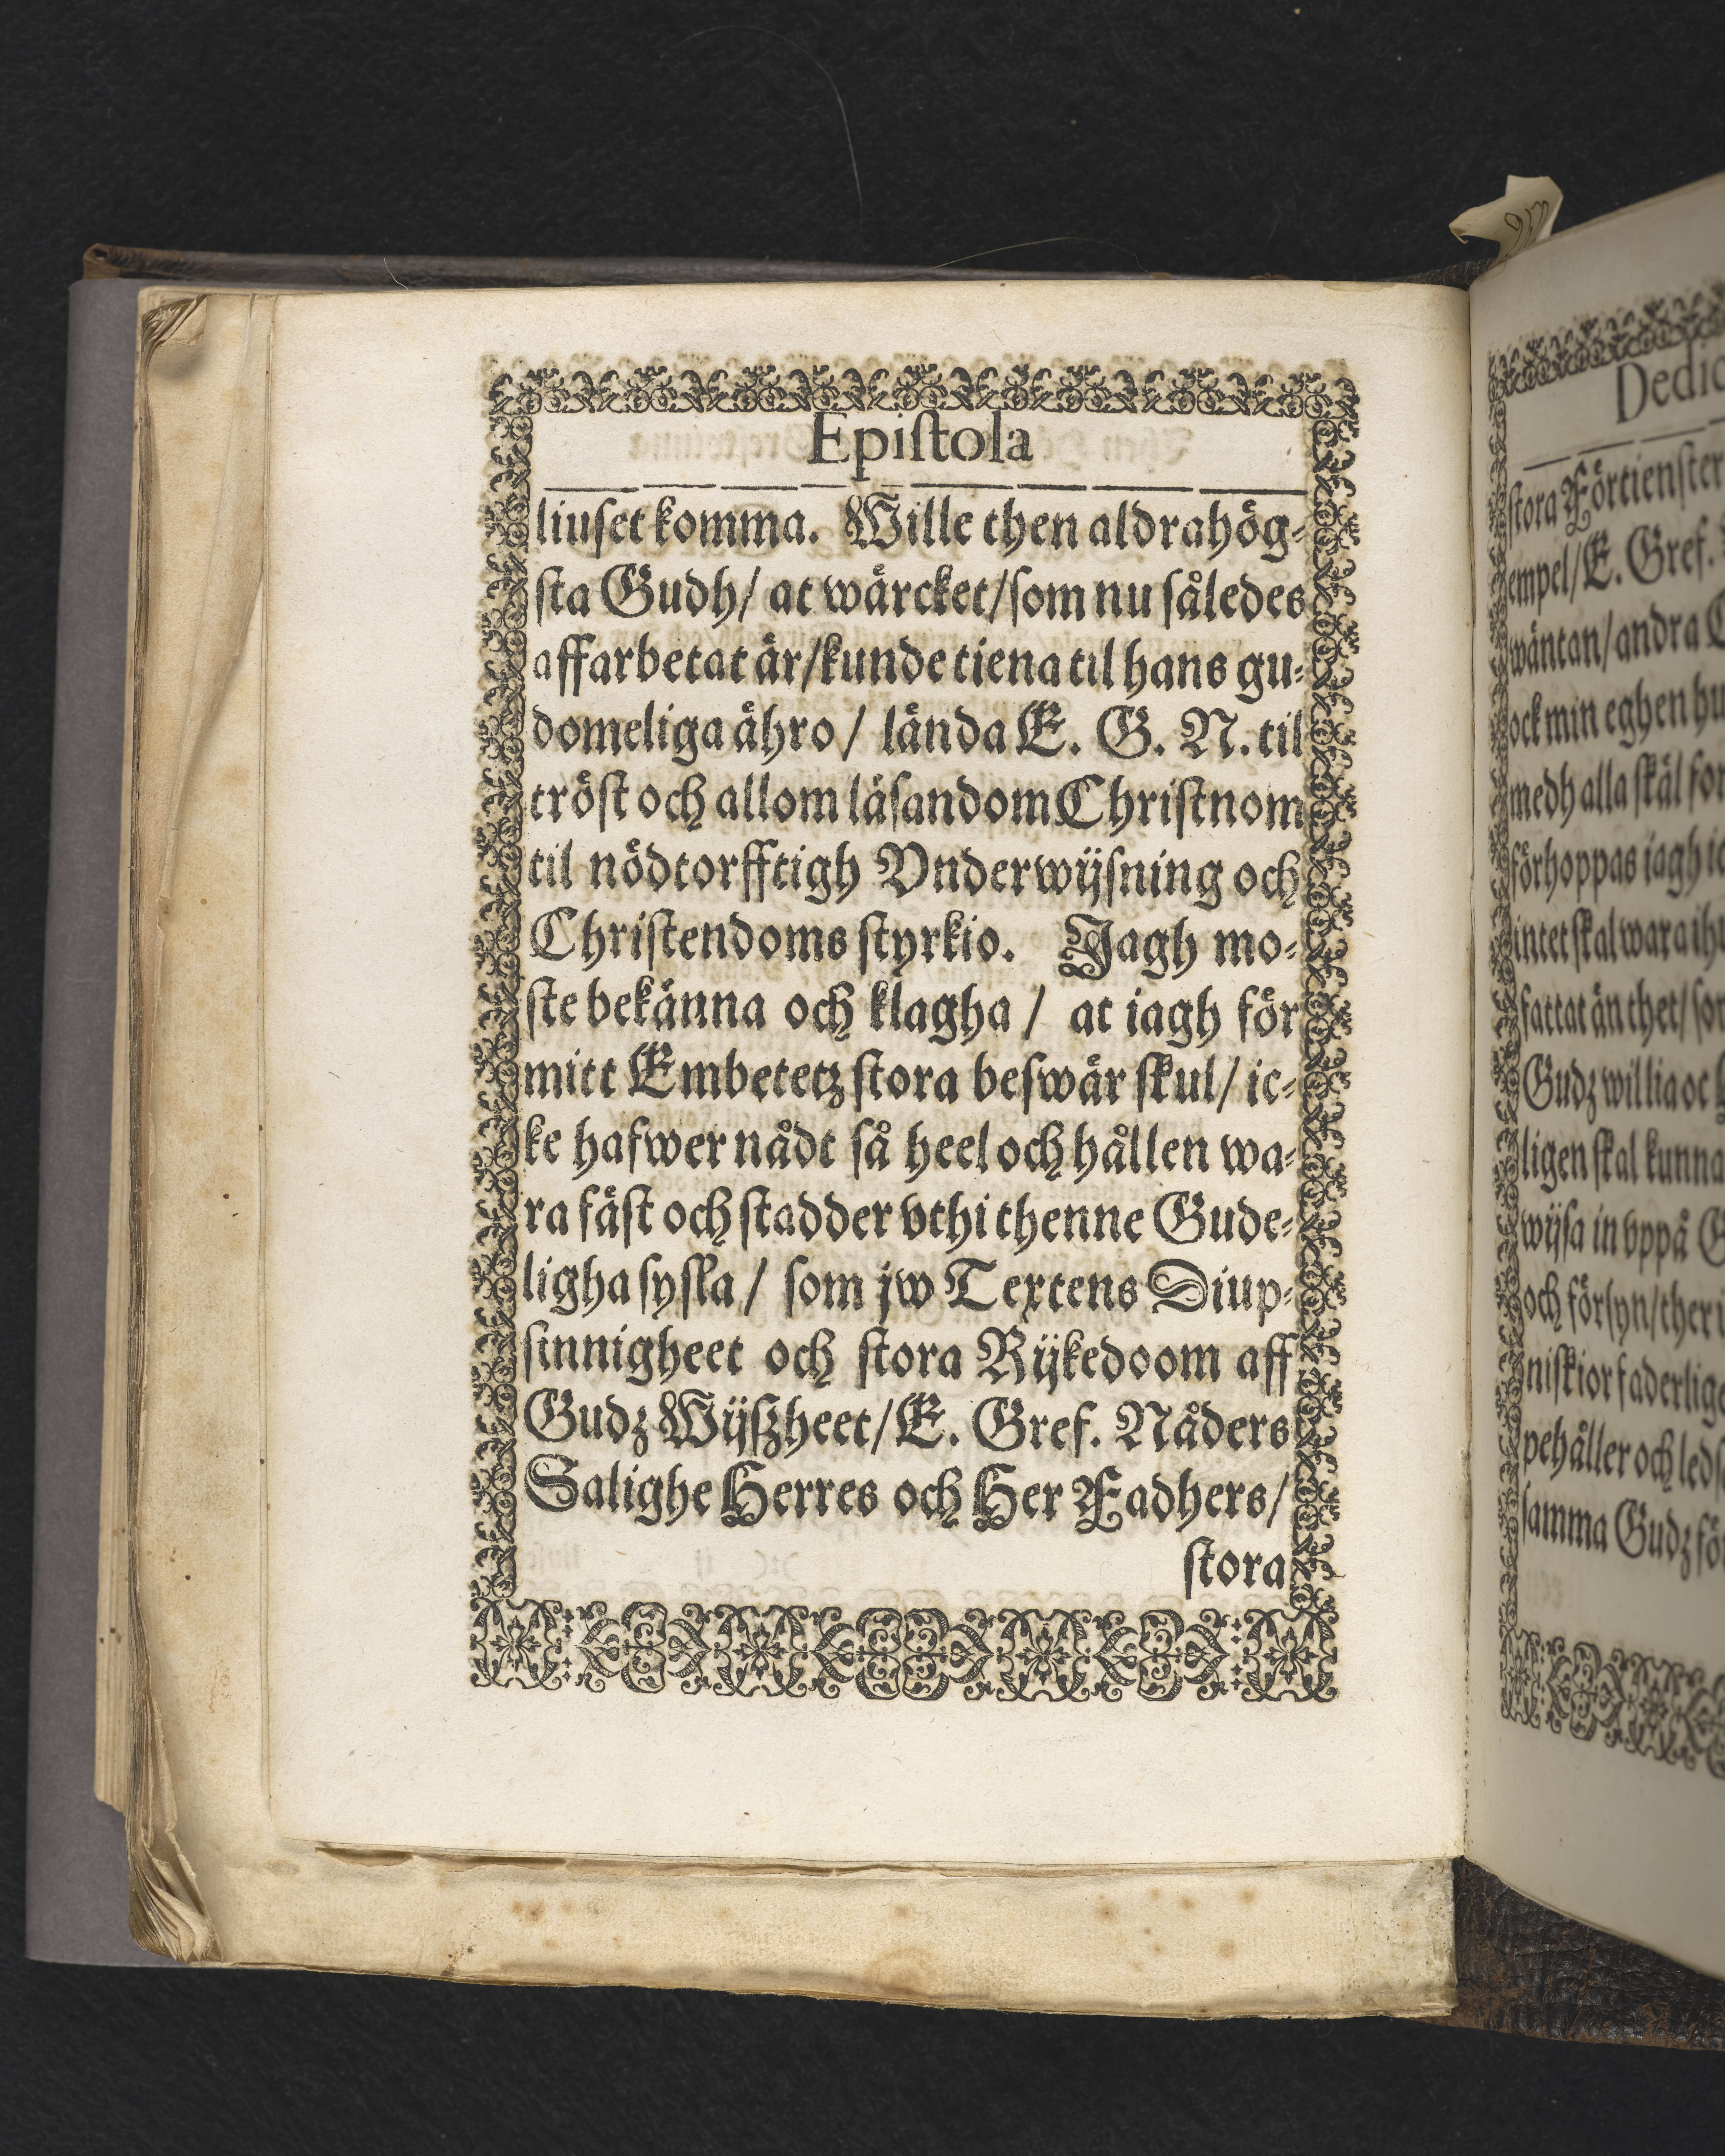 Epiſtola
liuſet komma. Wille then aldrahög⸗
ſta Gudh/ at wärcket/ſom nu således
affarbetat är/kunde tiena til hans gu⸗
domeliga ähro/ lända E. G. N. til
tröſt och allom läſandom Chriſtnom
til nödtorfftigh Vnderwijſning och
Chriſtendoms ſtyrkio. Jagh mo⸗
ſte bekänna och klagha / at iagh för
mitt Embetetz ſtora beswär ſkul/ ic⸗
ke hafwer nådt så heel och hållen wa⸗
ra fäſt och ſtadder vthi thenne Gude⸗
ligha ſyſla / ſom jw Textens Diup⸗
ſinnigheet och ſtora Rijkedoom aff
Gudz Wijſzheet/E. Gref. Nåders
Salighe Herres och Her Fadhers/
ſtora
ſtora Förtienſter
empel/E. Gref.
wäntan/andra
ock min eghen hu
medh alla ſkäl for
förhoppas iagh ic
intet ſkal wara ihu
fattat än thet/ ſom
Gudz willia oc
ligen ſkal kunna
wijſa in vppå G
och förſyn/ther i
niſkior faderlige
pehåller och ledſ
ſamma Gudz fö